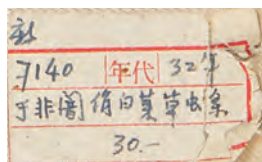 7140 年代 32年
于非闇 俏白莫草虫条
30.-